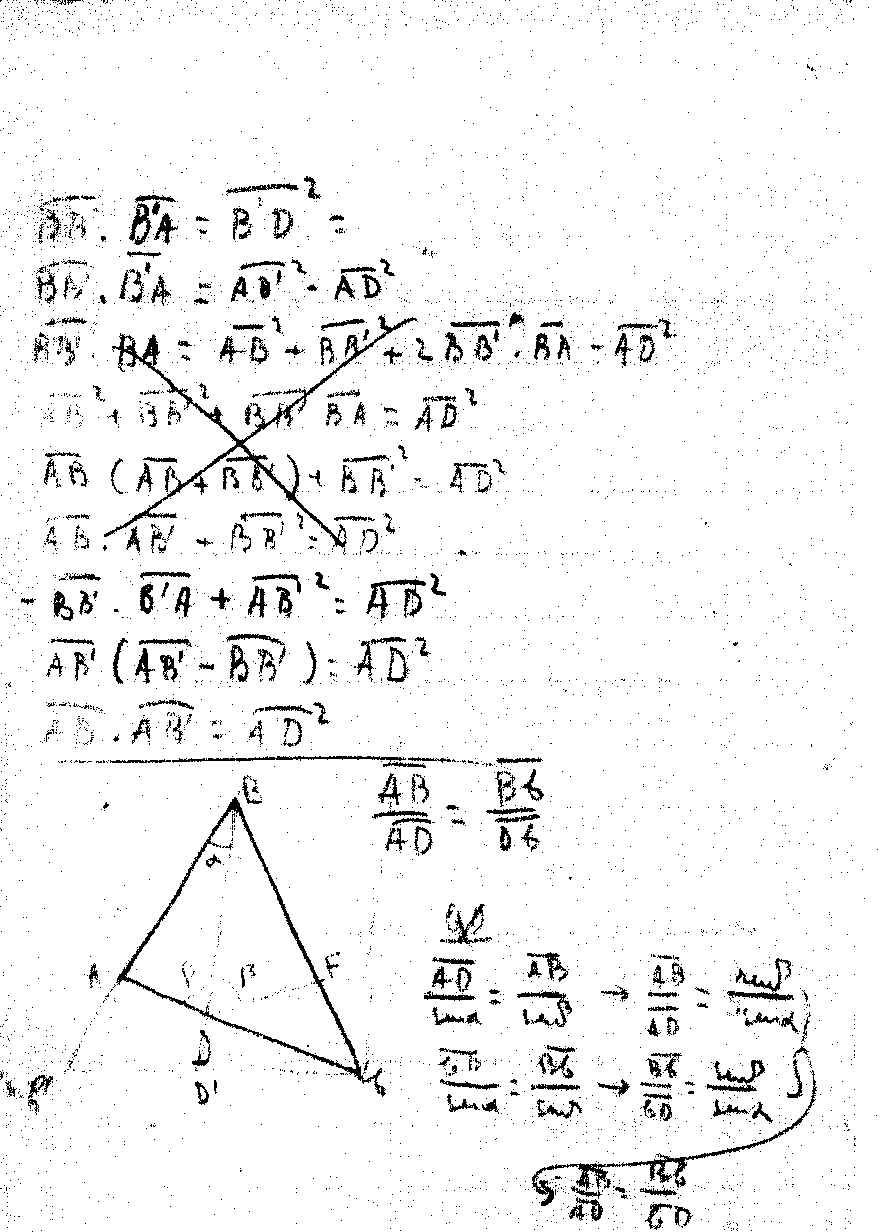 BB' . B'A = B'D² =
BB' . B'A = AD'² - AD²
BB' . BA = AB² + BB'² + 2 BB' . BA - AD²
AB² + BB'² + BB' BA = AD²
AB (AB + BB') + BB'² = AD²
AB . AB' + BB'² = AD²
- BB' . B'A + AB'² = AD²
AB' (AB' - BB') = AD²
AD . AB' = AD²
AB/AD = BC/DC
B
α
A
β
F
D
D'
C
AD/sen α = AB/sen β → AB/AD = sen β/sen α
CD/sen α = BC/sen β → BC/CD = sen β/sen α
AB/AD = BC/CD